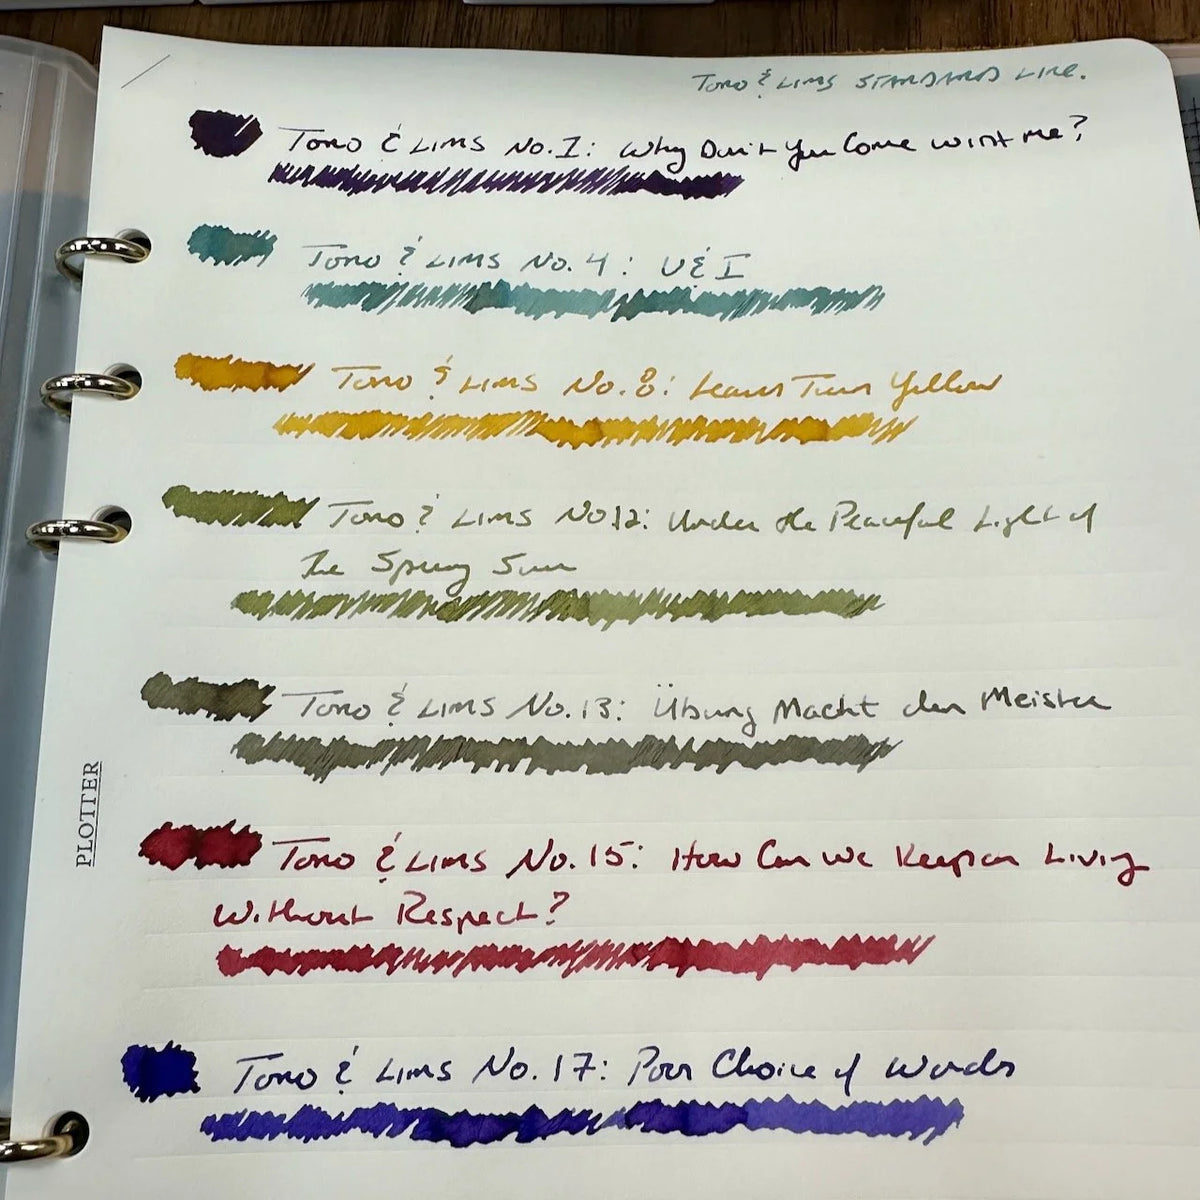 Tono & Lims Standard Line.
Tono & Lims No. 1: Why Don't You Come With Me?
Tono & Lims No. 4: U & I
Tono & Lims No. 8: Leaves Turn Yellow
Tono & Lims No 12: Under the Peaceful Light of
The Spring Sun
Tono & Lims No. 13: Übung Macht den Meister
PLOTTER
Tono & Lims No. 15: How Can We Keep on Living
Without Respect?
Tono & Lims No. 17: Poor Choice of Words